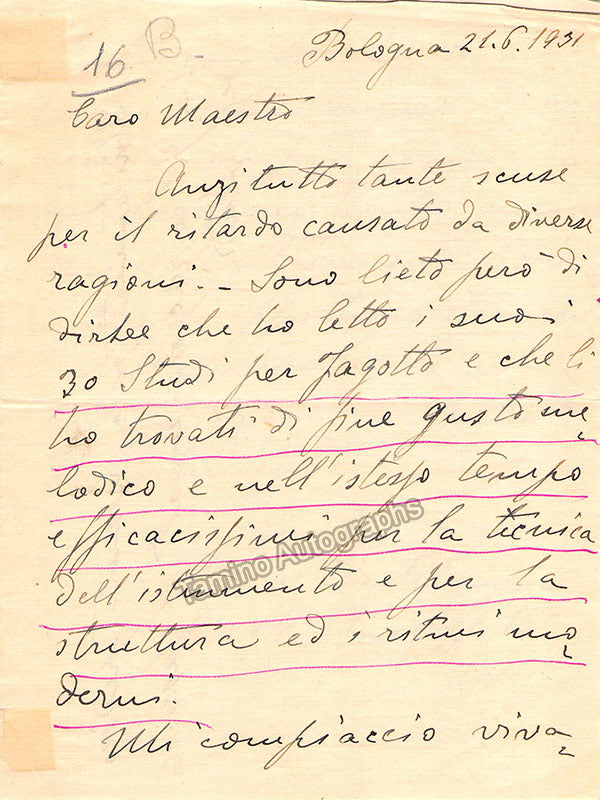 16 B-
Bologna 21.6.1931
Caro Maestro
Anzitutto tante scuse
per il ritardo causato da diverse
ragioni. - Sono lieto però di
dirLe che ho letto i suoi
30 Studi per Fagotto e che li
ho trovati di fine gusto me=
lodico e nell'istesso tempo
efficacissimi per la tecnica
dell'istrumento e per la
struttura ed i ritmi mo=
derni.
Mi compiaccio viva=
Tamino Autographs